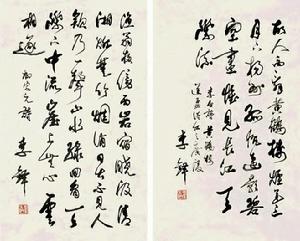 故人西辭黄鶴樓烟花三
月下揚州孤帆遠影碧
空盡惟見長江天
際流
李白詩黄鶴樓
送孟浩然之廣陵
李鐸
漁翁夜傍西岩宿曉汲清
湘燃楚竹烟消日出不見人
欸乃一聲山水緑回看天
際下中流岩上無心雲
相逐
柳宗元詩
李鐸